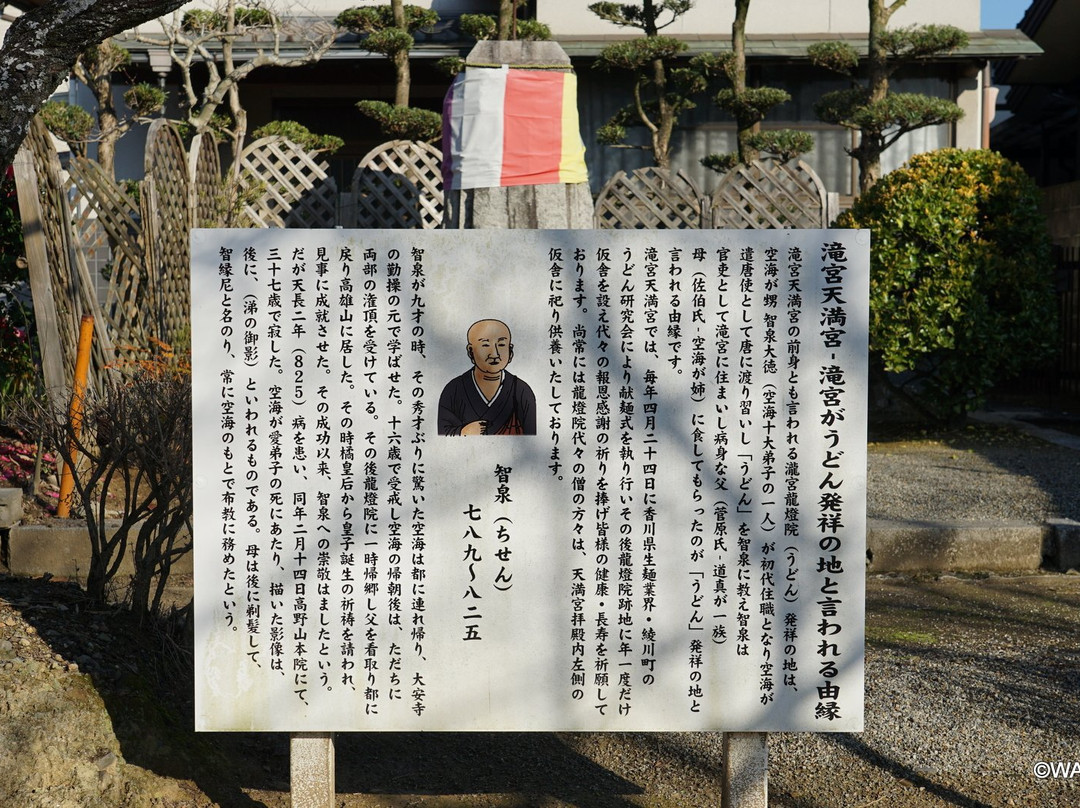 滝宮天満宮-滝宮がうどん発祥の地と言われる由縁
滝宮天満宮の前身とも言われる瀧宮龍燈院(うどん)発祥の地は、
空海が甥 智泉大徳(空海十大弟子の一人)が初代住職となり空海が
遣唐使として唐に渡り習いし「うどん」を智泉に教え智泉は
官吏として滝宮に住まいし病身な父(菅原氏-道真が一族)
母(佐伯氏-空海が姉)に食してもらったのが「うどん」発祥の地と
言われる由縁です。
滝宮天満宮では、毎年四月二十四日に香川県生麺業界・綾川町の
うどん研究会により献麺式を執り行いその後龍燈院跡地に年一度だけ
仮舎を設え代々の報恩感謝の祈りを捧げ皆様の健康・長寿を祈願して
おります。尚常には龍燈院代々の僧の方々は、天満宮拝殿内左側の
仮舎に祀り供養いたしております。
智泉(ちせん)
七八九〜八二五
智泉が九才の時、その秀才ぶりに驚いた空海は都に連れ帰り、大安寺
の勤操の元で学ばせた。十六歳で受戒し空海の帰朝後は、ただちに
両部の潅頂を受けている。その後龍燈院に一時帰郷し父を看取り都に
戻り高雄山に居した。その時橘皇后から皇子誕生の祈祷を請われ、
見事に成就させた。その成功以来、智泉への崇敬はましたという。
だが天長二年(825)病を患い、同年二月十四日高野山本院にて、
三十七歳で寂した。空海が愛弟子の死にあたり、描いた影像は、
後に、(涕の御影)といわれるものである。母は後に剃髪して、
智縁尼と名のり、常に空海のもとで布教に務めたという。
©WA